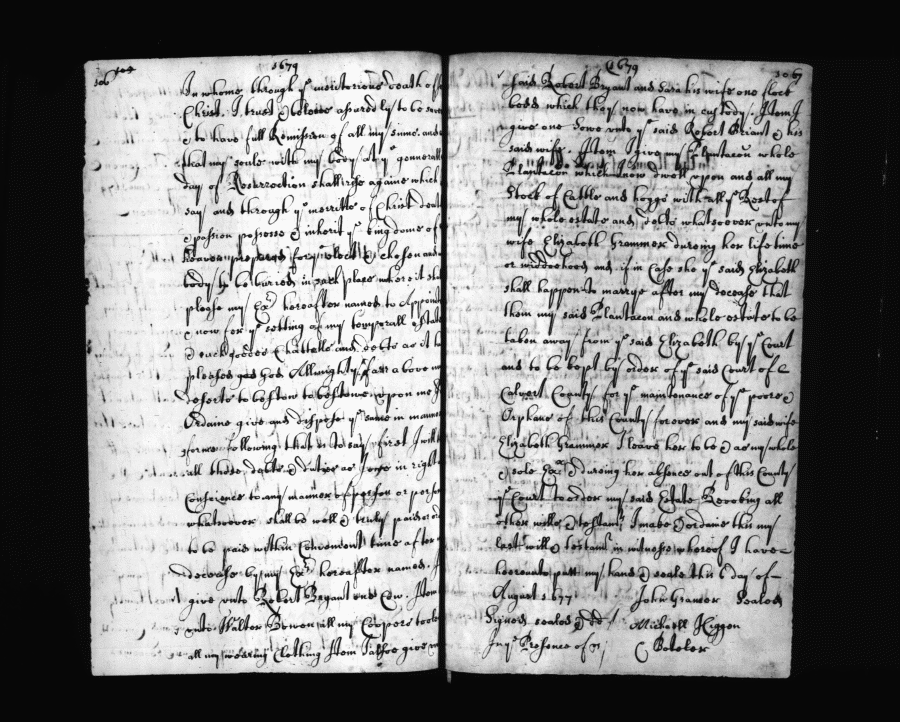 106
1679
In whome through ye meritorious death of
Christ I trust & beleive assuredly to be
& to have full Remission of all my sinns and
that my soule with my body at ye gennerall
day of Resurrection shall rise againe which
say and through ye merritts of Christ death
& passion possesse & inherit ye kingdome of
Heaven prepared for ye elect & chosen and
body to be buried in such place where it
please my Exr hereafter named to Appoint
& now for ye setling of my temporall Estate
& such goodes Chattells and debts as it
pleased god God Allmighty farr above my
deserts to bestow to bestowe upon me
Ordaine give and dispose ye same in manner
forme following that is to say first I will
all those debts & duties as I owe in right
Conscience to any manner of person or persons
whatsoever shall be well & truly paid
to be paid within Convenient time after
decease by my Exr hereafter named.
give unto Robert Bryant one Cow. Item
unto Walter Bowen all my Coopers tooles
all my wearing Clothing Item I also give
1679
1067
said Robert Bryant and Sara his wife one flock
bedd which they now have in custody. Item I
give one Sowe unto ye said Robert Briant & his
said wife. Item I give my Plantacon whole
Plantacon which I now dwell upon and all my
Stock of Cattle and hoggs with all ye Rest of
my whole estate and debts whatsoever unto my
wife Elizabeth Grammer dureing her life time
or widdowhood and if in Case she ye said Elizabeth
shall happen to marrye after my decease that
then my said Plantacon and whole estate to be
taken away from ye said Elizabeth by ye Court
and to be kept by order of ye said Court of
Calvert County for ye maintenance of ye poore
Orphans of this County for ever and my said wife
Elizabeth Grammer I leave her to be as my whole
& sole Exr & dureing her absence out of this County
ye Court to order my said Estate Revoking all
other wills & testamt I make & ordaine this my
last will & testamt in witnesse whereof I have
hereunto putt my hand & seale this 6 day of
August 1677 John Gramer Sealed
Signed sealed & dd Michaell Higgon
In ye Presence of C Boteler